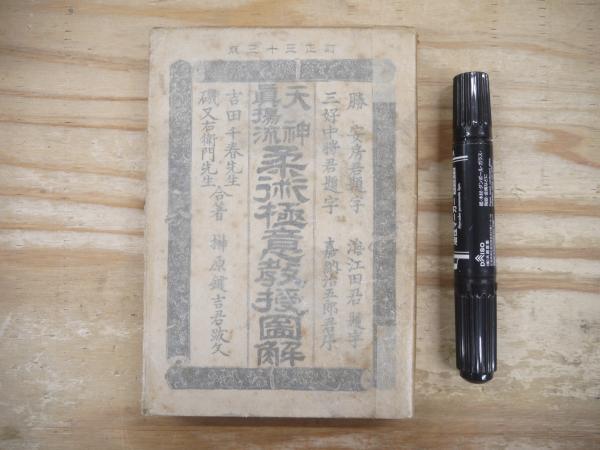 訂正三十三版
勝 安房君題字 澁江田君題字
三好中將君題字 嘉納治五郎君序
天神
眞楊流
柔術極意教授圖解
吉田千春先生
磯又右衛門先生
合著 榊原鍵吉君跋文
DAISO